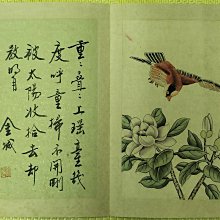 重々疊々上瑤臺幾
度呼童掃不開剛
被太陽收拾去却
教明月
金城